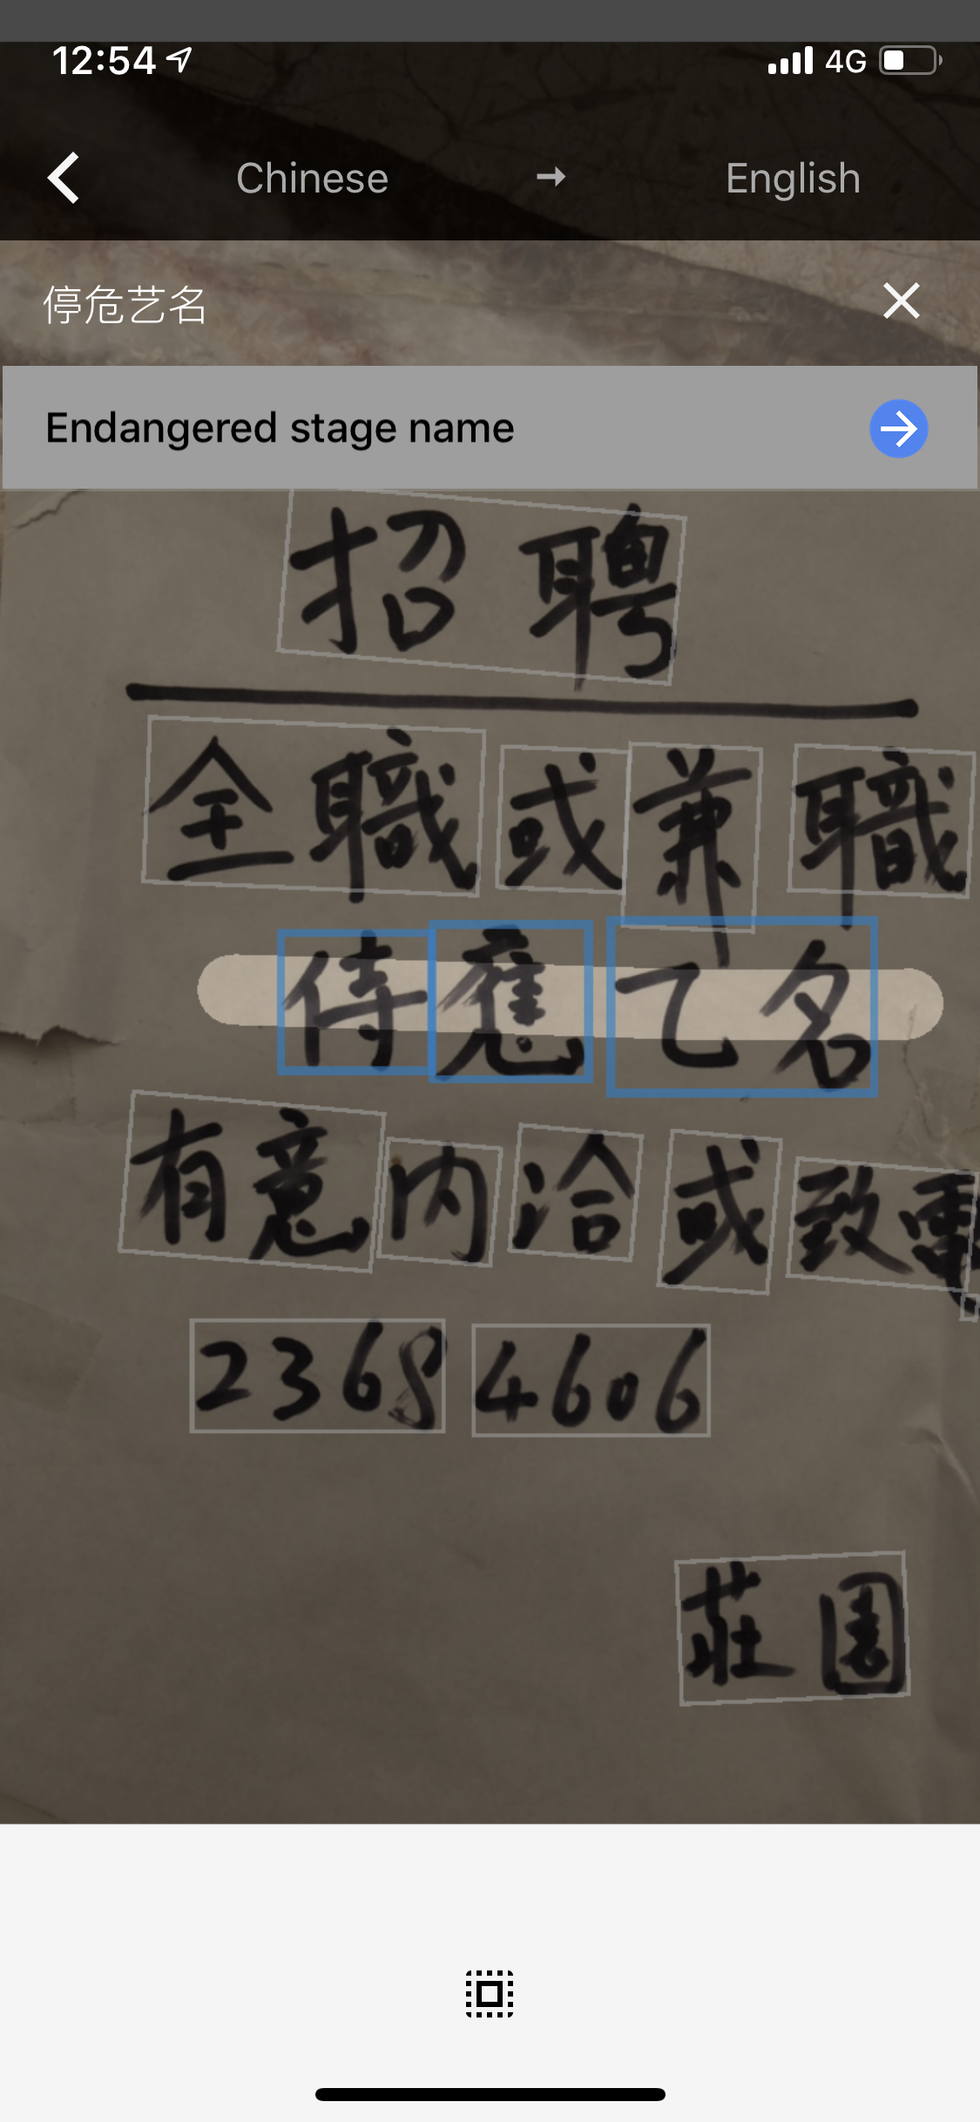 12:54 4G
Chinese → English
停危艺名
Endangered stage name
招聘
全職或兼職
侍應乙名
有意內洽或致電
2368 4606
莊園